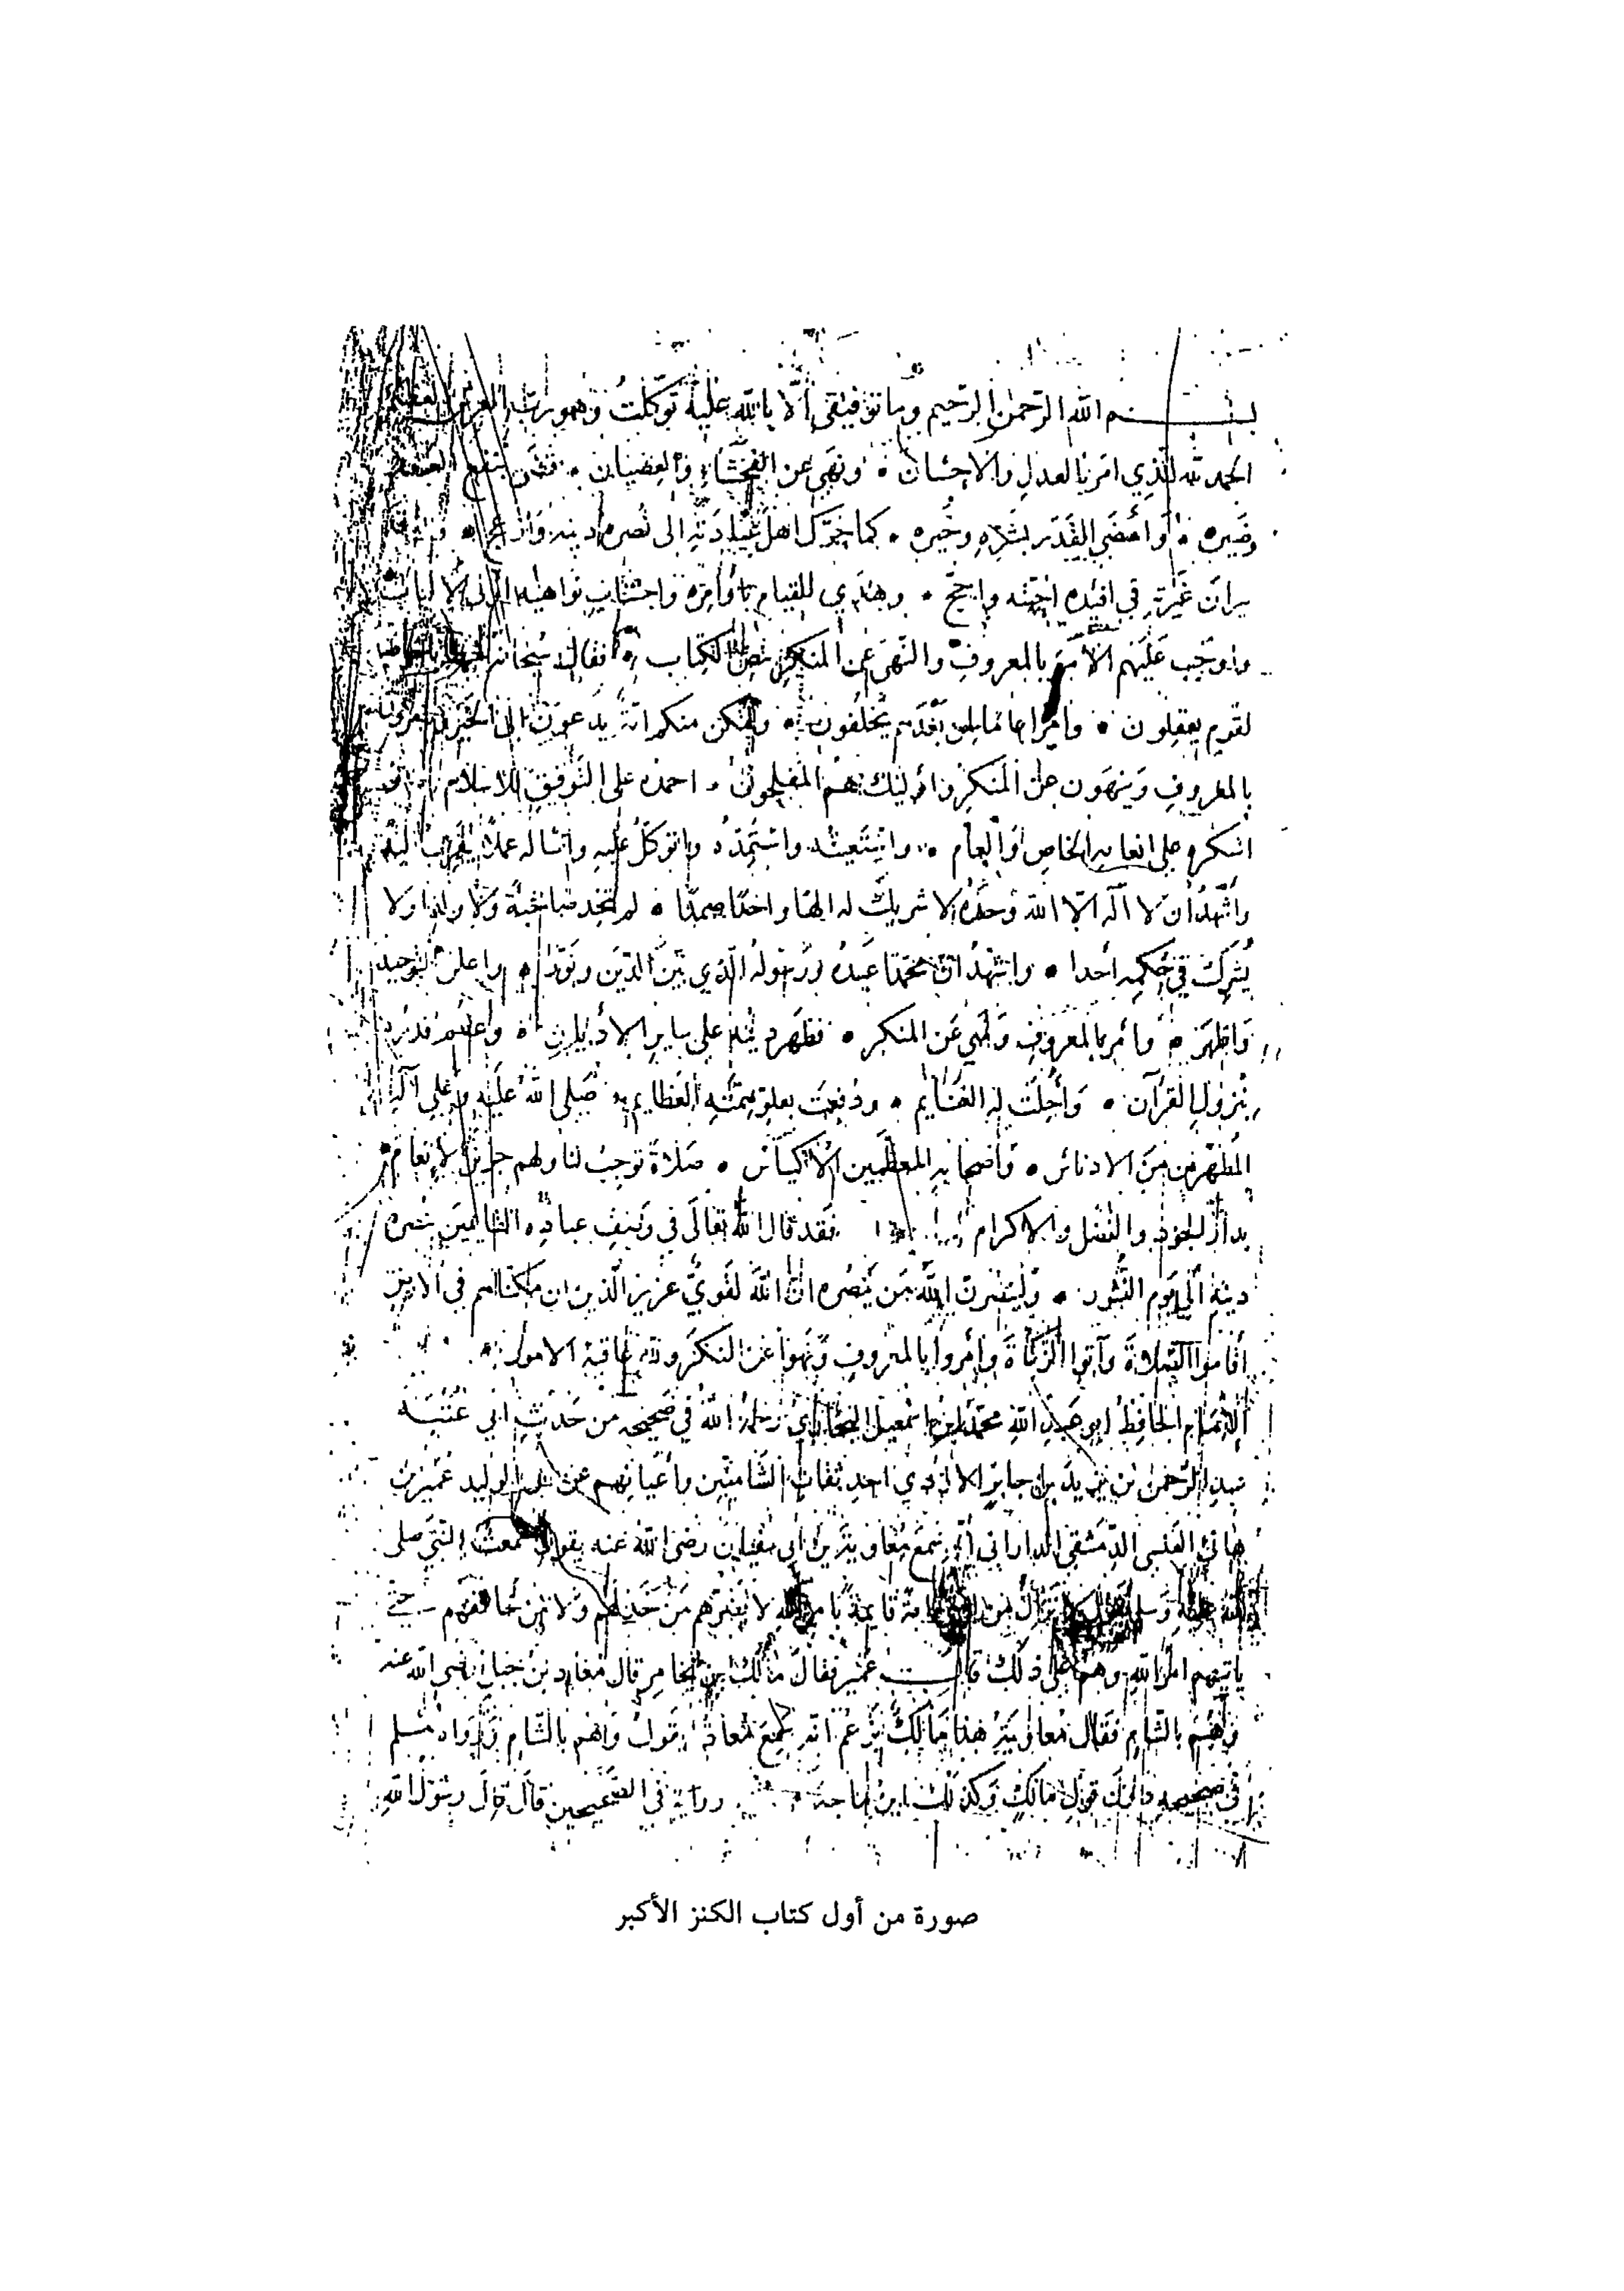 بسم الله الرحمن الرحيم وما توفيقي الا بالله عليه توكلت وهو رب العرش العظيم
الحمد لله الذي امر بالعدل والاحسان • ونهى عن الفحشاء والعصيان •
وضيره • وأمضى القدر بشره وخيره • كما حرك اهل الى نصره دينه
غيرة في افئدة واجج • وهدى للقيام بأوامره واجتناب نواهيه
واوجب عليهم الأمر بالمعروف والنهي عن المنكر بنص الكتاب • فقال سبحانه
لقوم يعقلون • وامرا • ولتكن منكم امة يدعون الى الخير ويامرون
بالمعروف وينهون عن المنكر واوليك هم المفلحون • احمده على التوفيق للاسلام •
اشكره على انعامه الخاص والعام • واستعينه واستمده واتوكل عليه واساله عملا يقرب اليه
وأشهد أن لا اله الا الله وحده لا شريك له الها واحدا صمدا • لم يتخذ صاحبة ولا ولدا ولا
يشرك في حكمه أحدا • واشهد ان محمدا عبده ورسوله الذي بين الدين ونور • واعلن التوحيد
واظهر • وأمر بالمعروف ونهى عن المنكر • فظهر دينه على ساير الأديان •
بنزول القرآن • وأحلت له الغنايم • ودفعت بعلو همته العظايم • صلى الله عليه وعلى آله
المطهرين من الادناس • وأصحابه المعظمين الأكياس • صلاة توجب لنا ولهم جزيل الانعام
بدار الجود والفضل والاكرام فقد قال الله تعالى في وصف عباده القايمين بنصره
دينه الى يوم النشور • ولينصرن الله من ينصره ان الله لقوي عزيز الذين ان مكناهم في الارض
أقاموا الصلاة وآتوا الزكاة وأمروا بالمعروف ونهوا عن المنكر ولله عاقبة الامور •
الإمام الحافظ ابو عبد الله محمد بن اسمعيل البخاري رحمه الله في صحيحه من حديث ابي عتبة
عبد الرحمن بن يزيد بن جابر الازدي احد ثقات الشاميين وأعيانهم عن ابي الوليد عمير بن
هانئ العنسي الدمشقي الداراني أنه سمع معاوية بن ابي سفيان رضي الله عنه يقول سمعت النبي صلى
الله عليه وسلم يقول لا تزال من امتي امة قايمة بامر الله لا يضرهم من خذلهم ولا من خالفهم حتى
ياتيهم امر الله وهم على ذلك قال عمير فقال مالك بن يخامر قال معاذ بن جبل رضي الله عنه
وهم بالشام فقال معاوية هذا مالك يزعم انه سمع معاذا يقول وهم بالشام ورواه مسلم
في صحيحه الى قول مالك وكذلك ابن ماجة • رواية في الصحيحين قال قال رسول الله
صورة من أول كتاب الكنز الأكبر